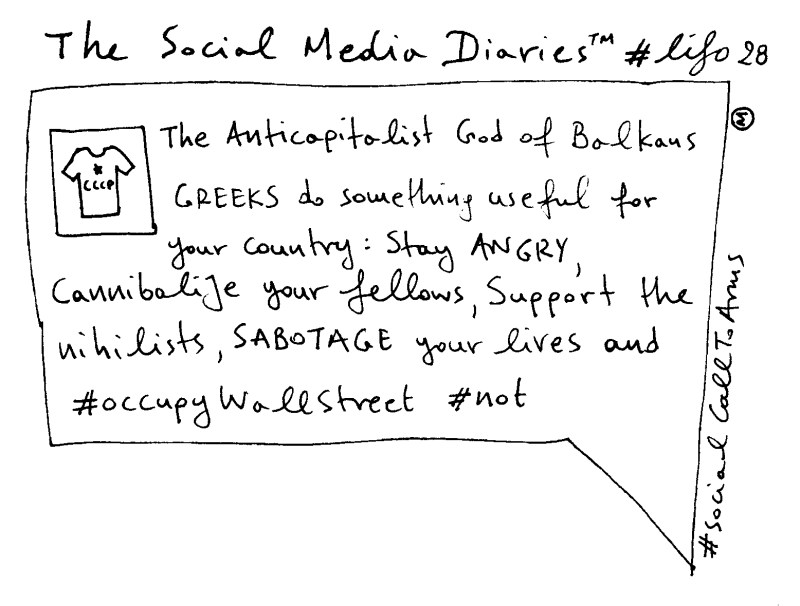 The Social Media Diaries™ #lifo 28
Ⓜ
The Anticapitalist God of Balkans
CCCP
GREEKS do something useful for
your country: Stay ANGRY,
Cannibalize your fellows, Support the
nihilists, SABOTAGE your lives and
#occupyWallStreet #not
#SocialCallToArms